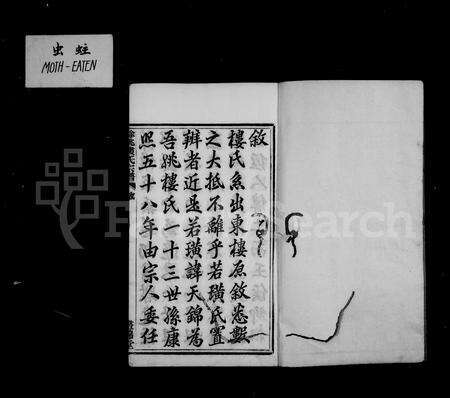 虫蛀
MOTH-EATEN
敘
樓氏系出東樓原敘悉數
之大抵不離乎若璜氏置
辨者近是若璜諱天錦為
吾姚樓氏一十三世孫康
熙五十八年由宗人委任
FamilySearch